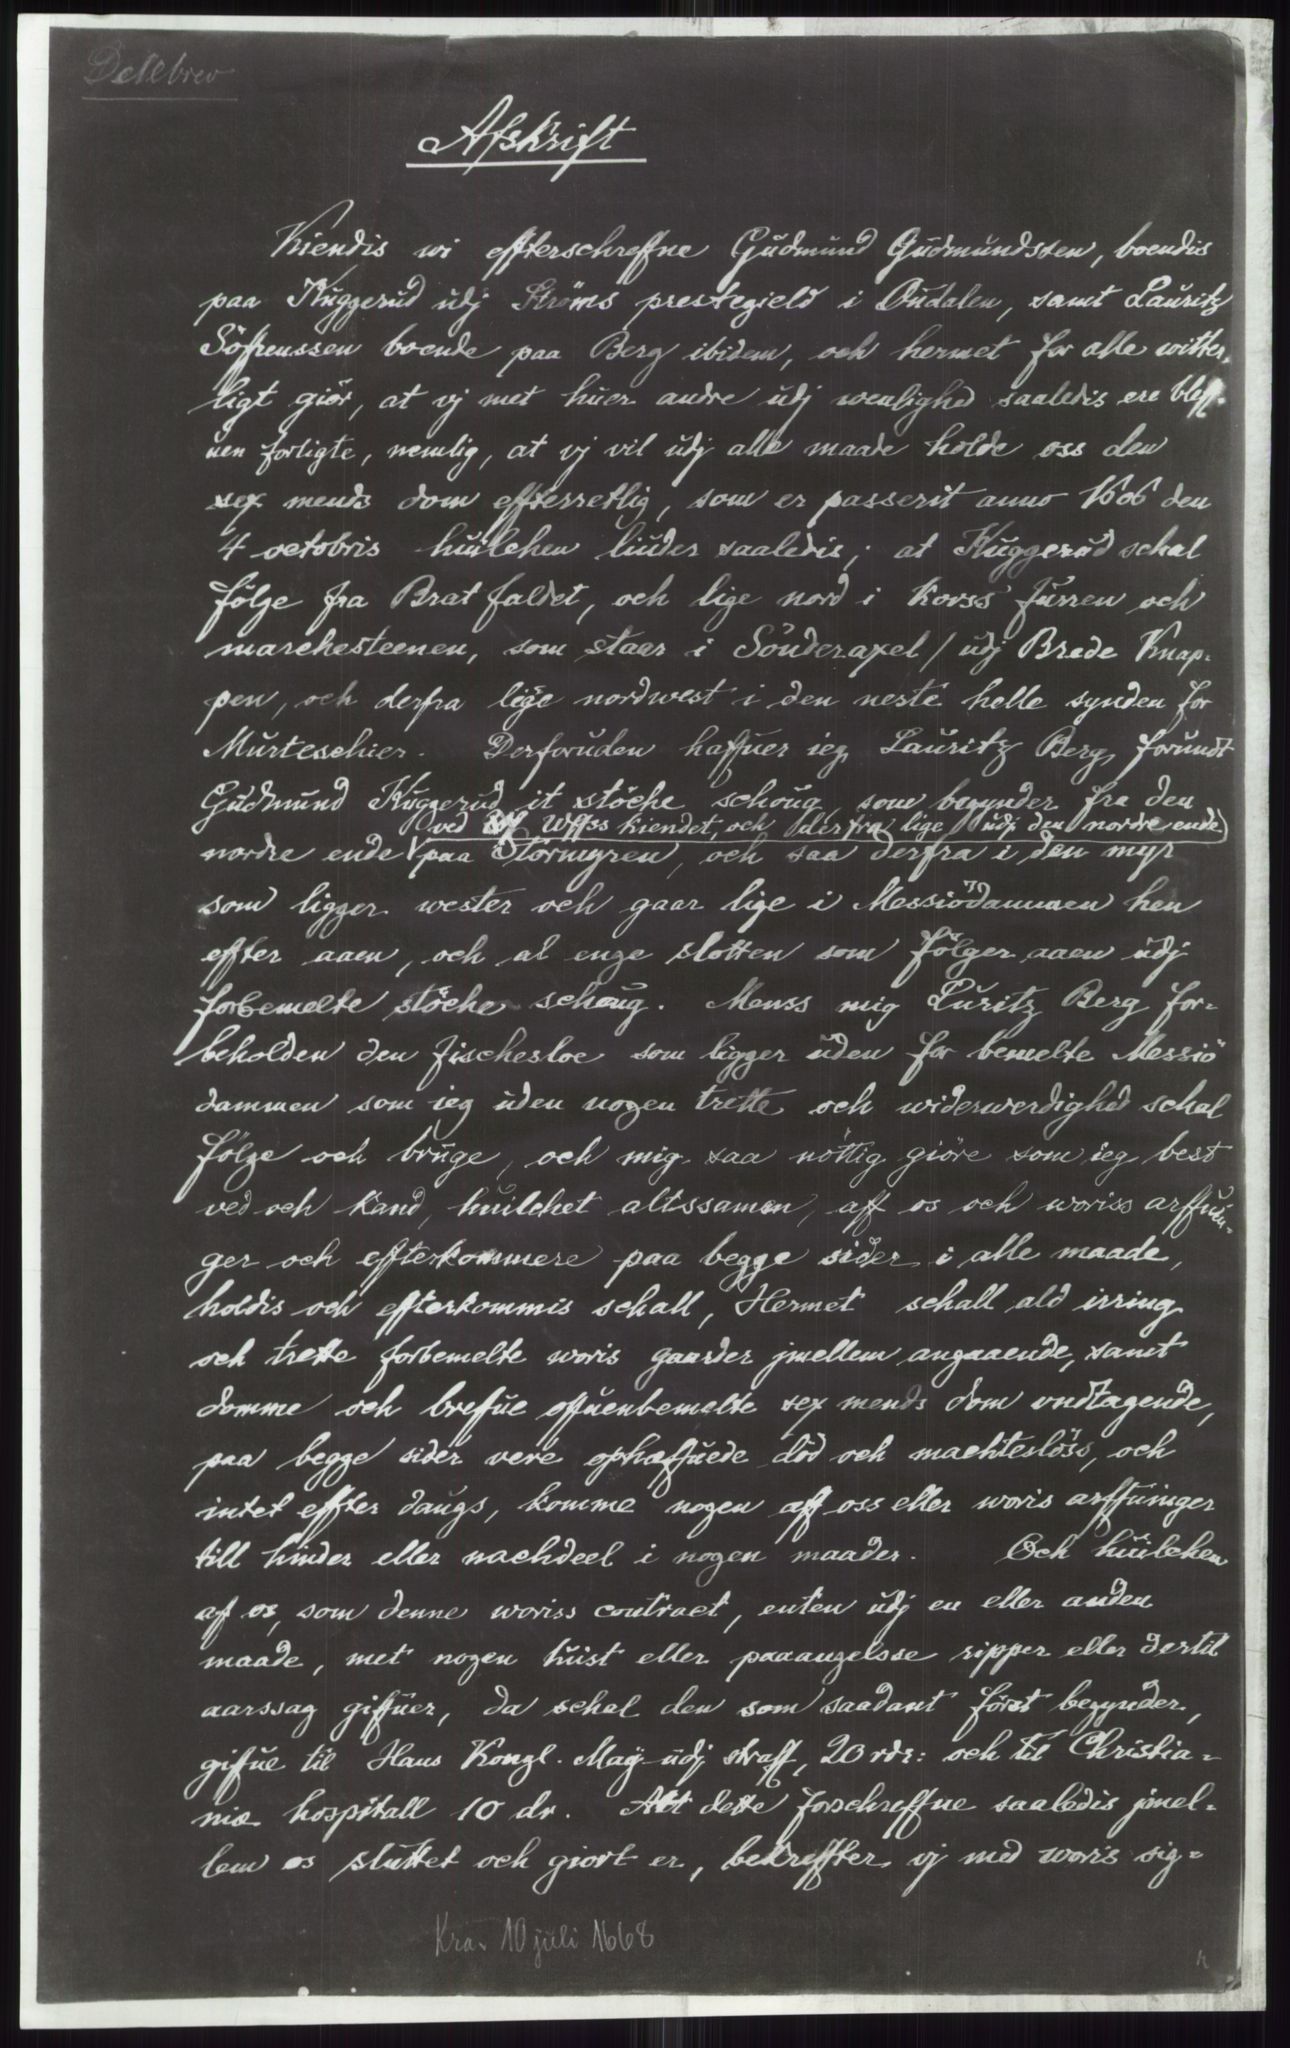 Delebrev
Afskrift
Kiendis wi effterschreffne Gudmund Gudmundssen, boendis
paa Kuggerud udj Ströms prestegield i Oudalen, samt Lauritz
Söfrenssen boende paa Berg ibidem, och hermet for alle witter-
ligt giör, at vj met huer andre udj wenlighed saaledis ere bleff-
uen forligte, nemlig, at vj vil udj alle maade holde oss den
sex mends dom effterretlig, som er passerit anno 1606 den
4 octobris huilchen liuder saaledis; at Kuggerud schal
fölge fra Brat faldet, och lige nord i Korss furren och
marchesteenen, som staar i Sönderaxel / udj Brede Knap-
pen, och derfra lige nordwest i den neste helle synden for
Murteschier. Derforuden haffuer ieg Lauritz Berg forundt
Gudmund Kuggerud it stöche schoug som begynder fra den
ved Uffss kiendet, och derfra lige udj den nordre ende
nordre ende paa Stormyren, och saa derfra i den myr
som ligger wester och gaar lige i Messiödammen hen
efter aaen, och al enge slotten som fölger aaen udj
forbemelte stöche schoug. Menss mig Luritz Berg for-
beholden den fischesloe som ligger uden for bemelte Messiö
dammen som ieg uden nogen trette och widerwerdighed schal
fölge och bruge, och mig saa nöttig giöre som ieg best
ved och kand, huilchet altssamen, aff os och woriss arffuin-
ger och effterkommere paa begge sider i alle maade,
holdis och effterkommis schall, Hermet schall ald irring
och trette forbemelte woris gaarder jmellem angaaende, samt
domme och brefue offuenbemelte sex mends dom undtagende,
paa begge sider vere ophaffuede död och machteslöss, och
intet effter daugs, komme nogen aff oss eller woris arffuinger
till hinder eller nachdeel i nogen maader. Och huilchen
af os, som denne woriss contract, enten udj en eller anden
maade, met nogen huist eller paaangelsse ripper eller dertil
aarssag giffuer, da schal den som saadant först begynder,
gifue til Hans Kongl. May udj straff, 20 rdr: och til Christia-
niæ hospitall 10 dr. Att dette forschreffne saaledis jmel-
lem os sluttet och giort er, bekreffter vj med woris sig-
Kra. 10 juli 1668